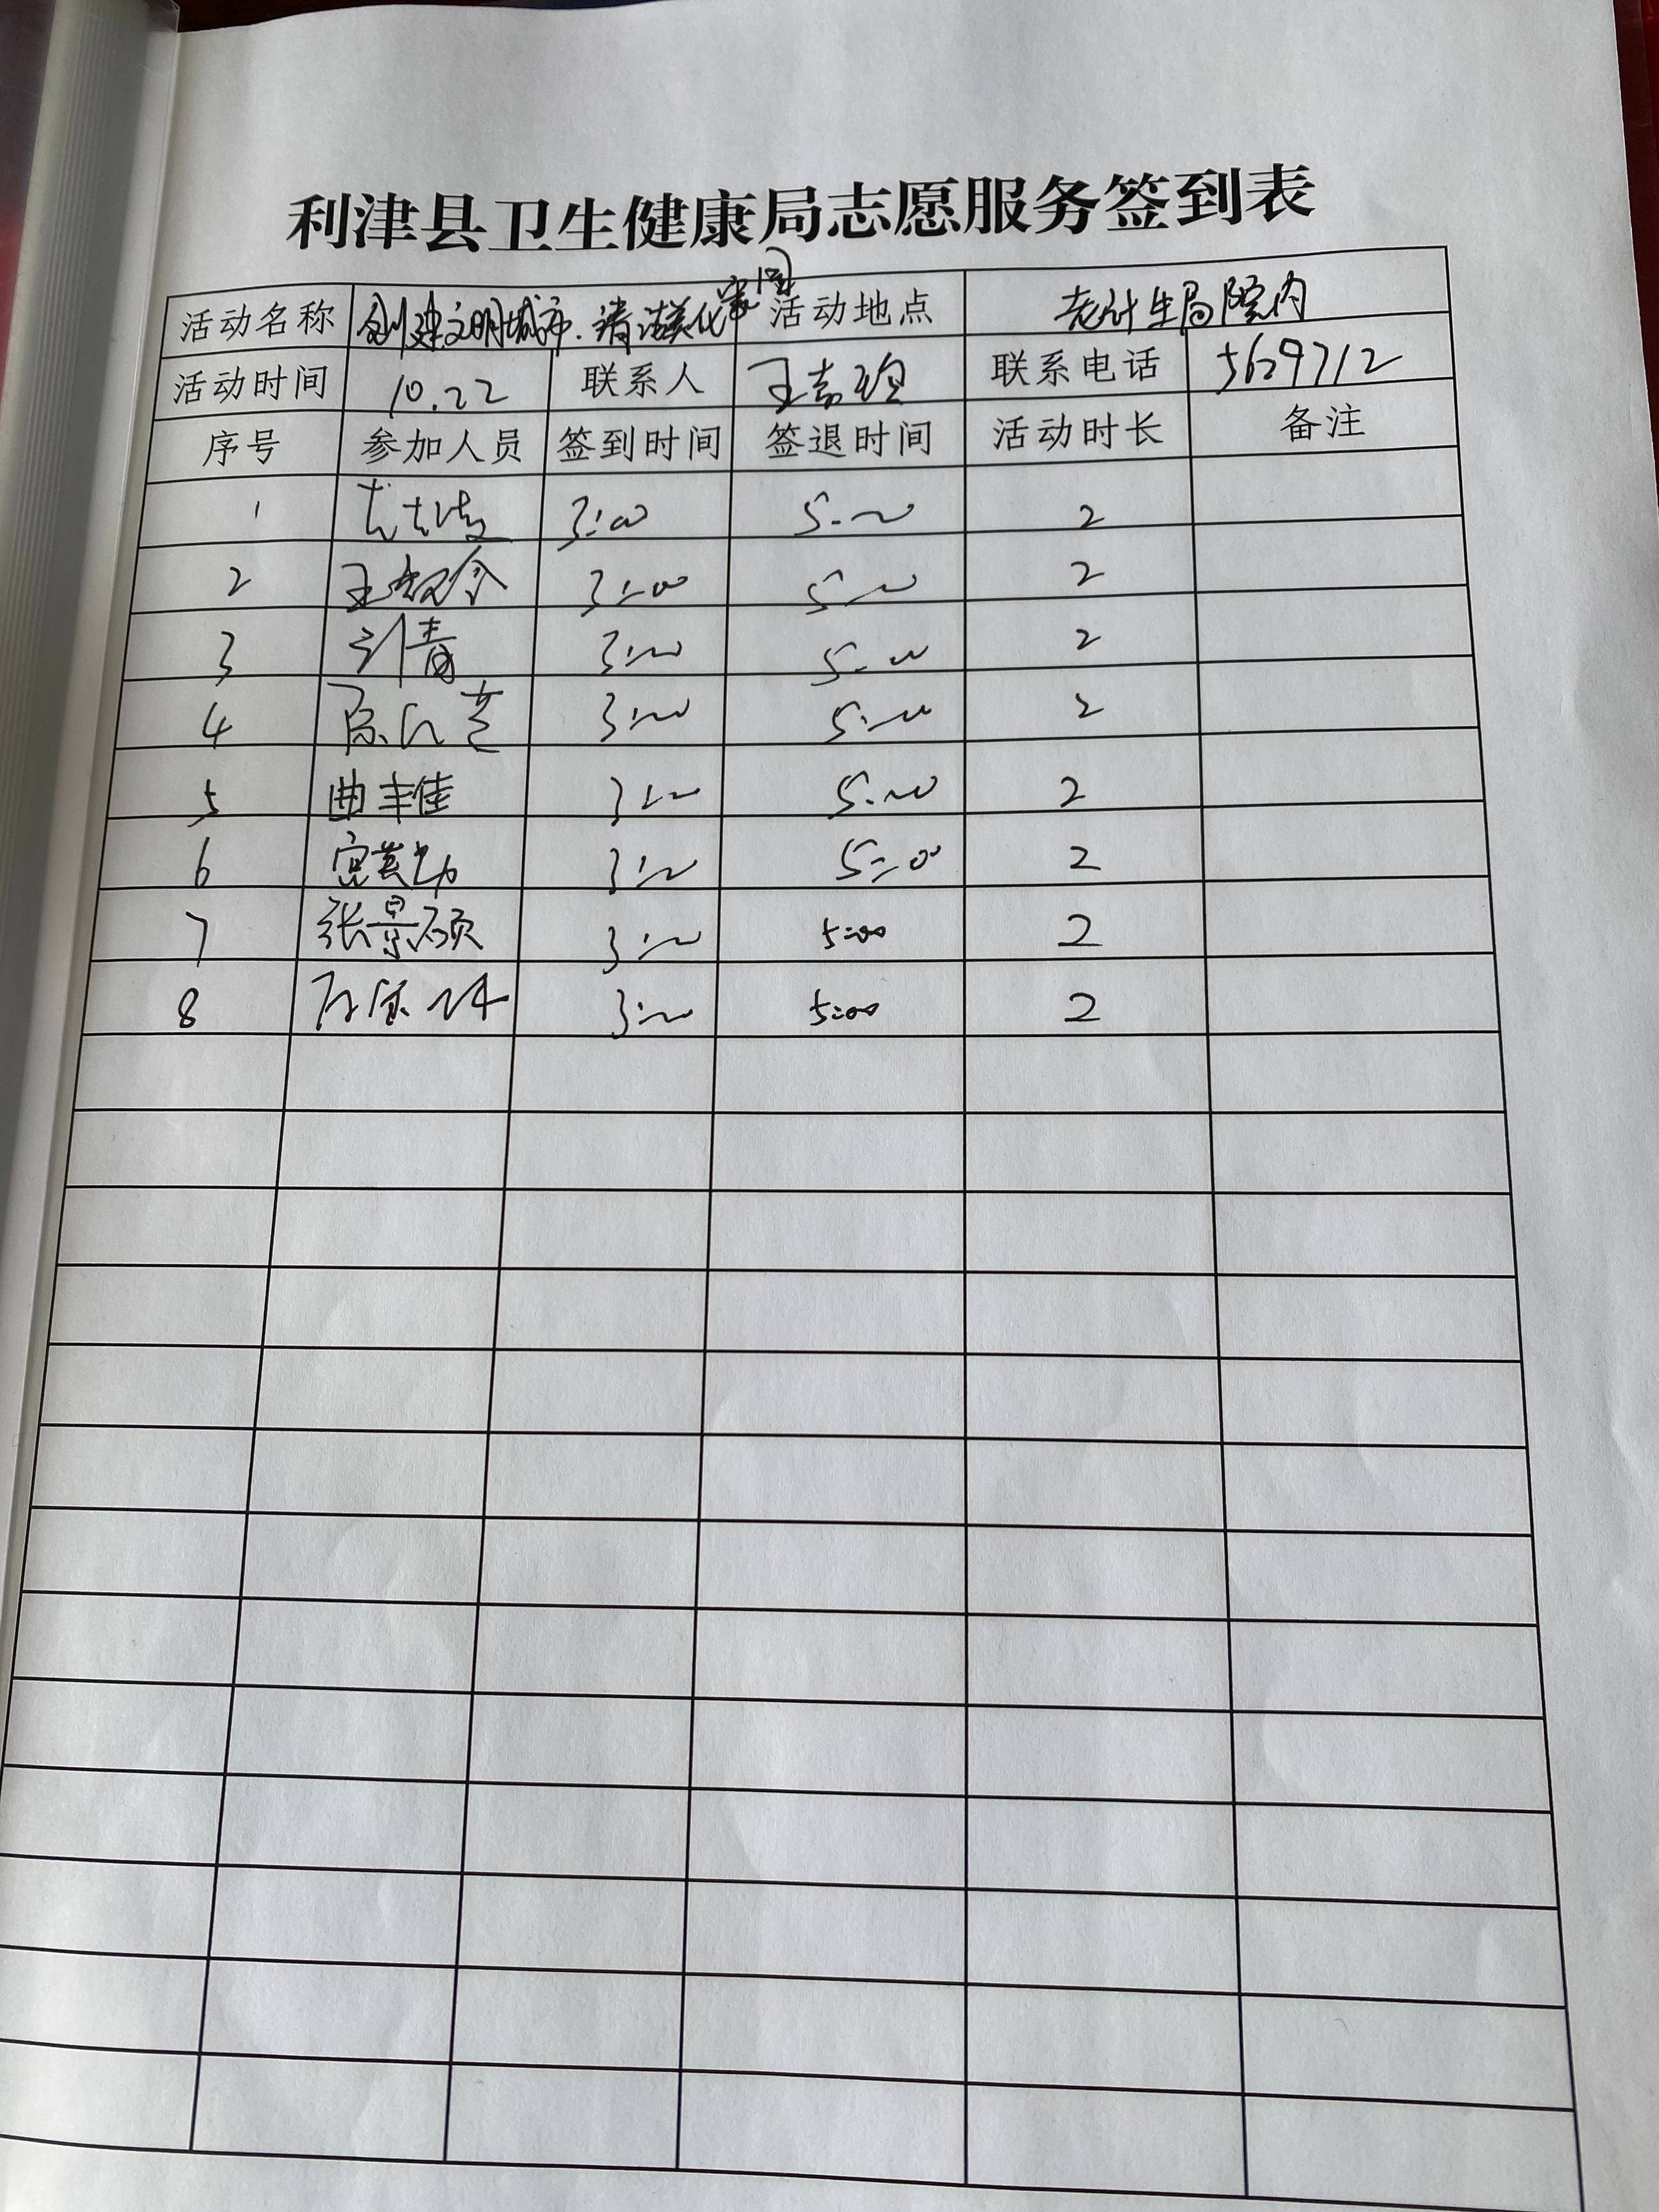 利津县卫生健康局志愿服务签到表
活动名称 创建文明城市.清洁美化家园 活动地点 老计生局院内
活动时间 10.22 联系人 王嘉玲 联系电话 5629712
序号 参加人员 签到时间 签退时间 活动时长 备注
1 3:00 5:00 2
2 3:00 5:00 2
3 刘青 3:00 5:00 2
4 3:00 5:00 2
5 曲丰佳 3:00 5:00 2
6 3:00 5:00 2
7 张景硕 3:00 5:00 2
8 3:00 5:00 2